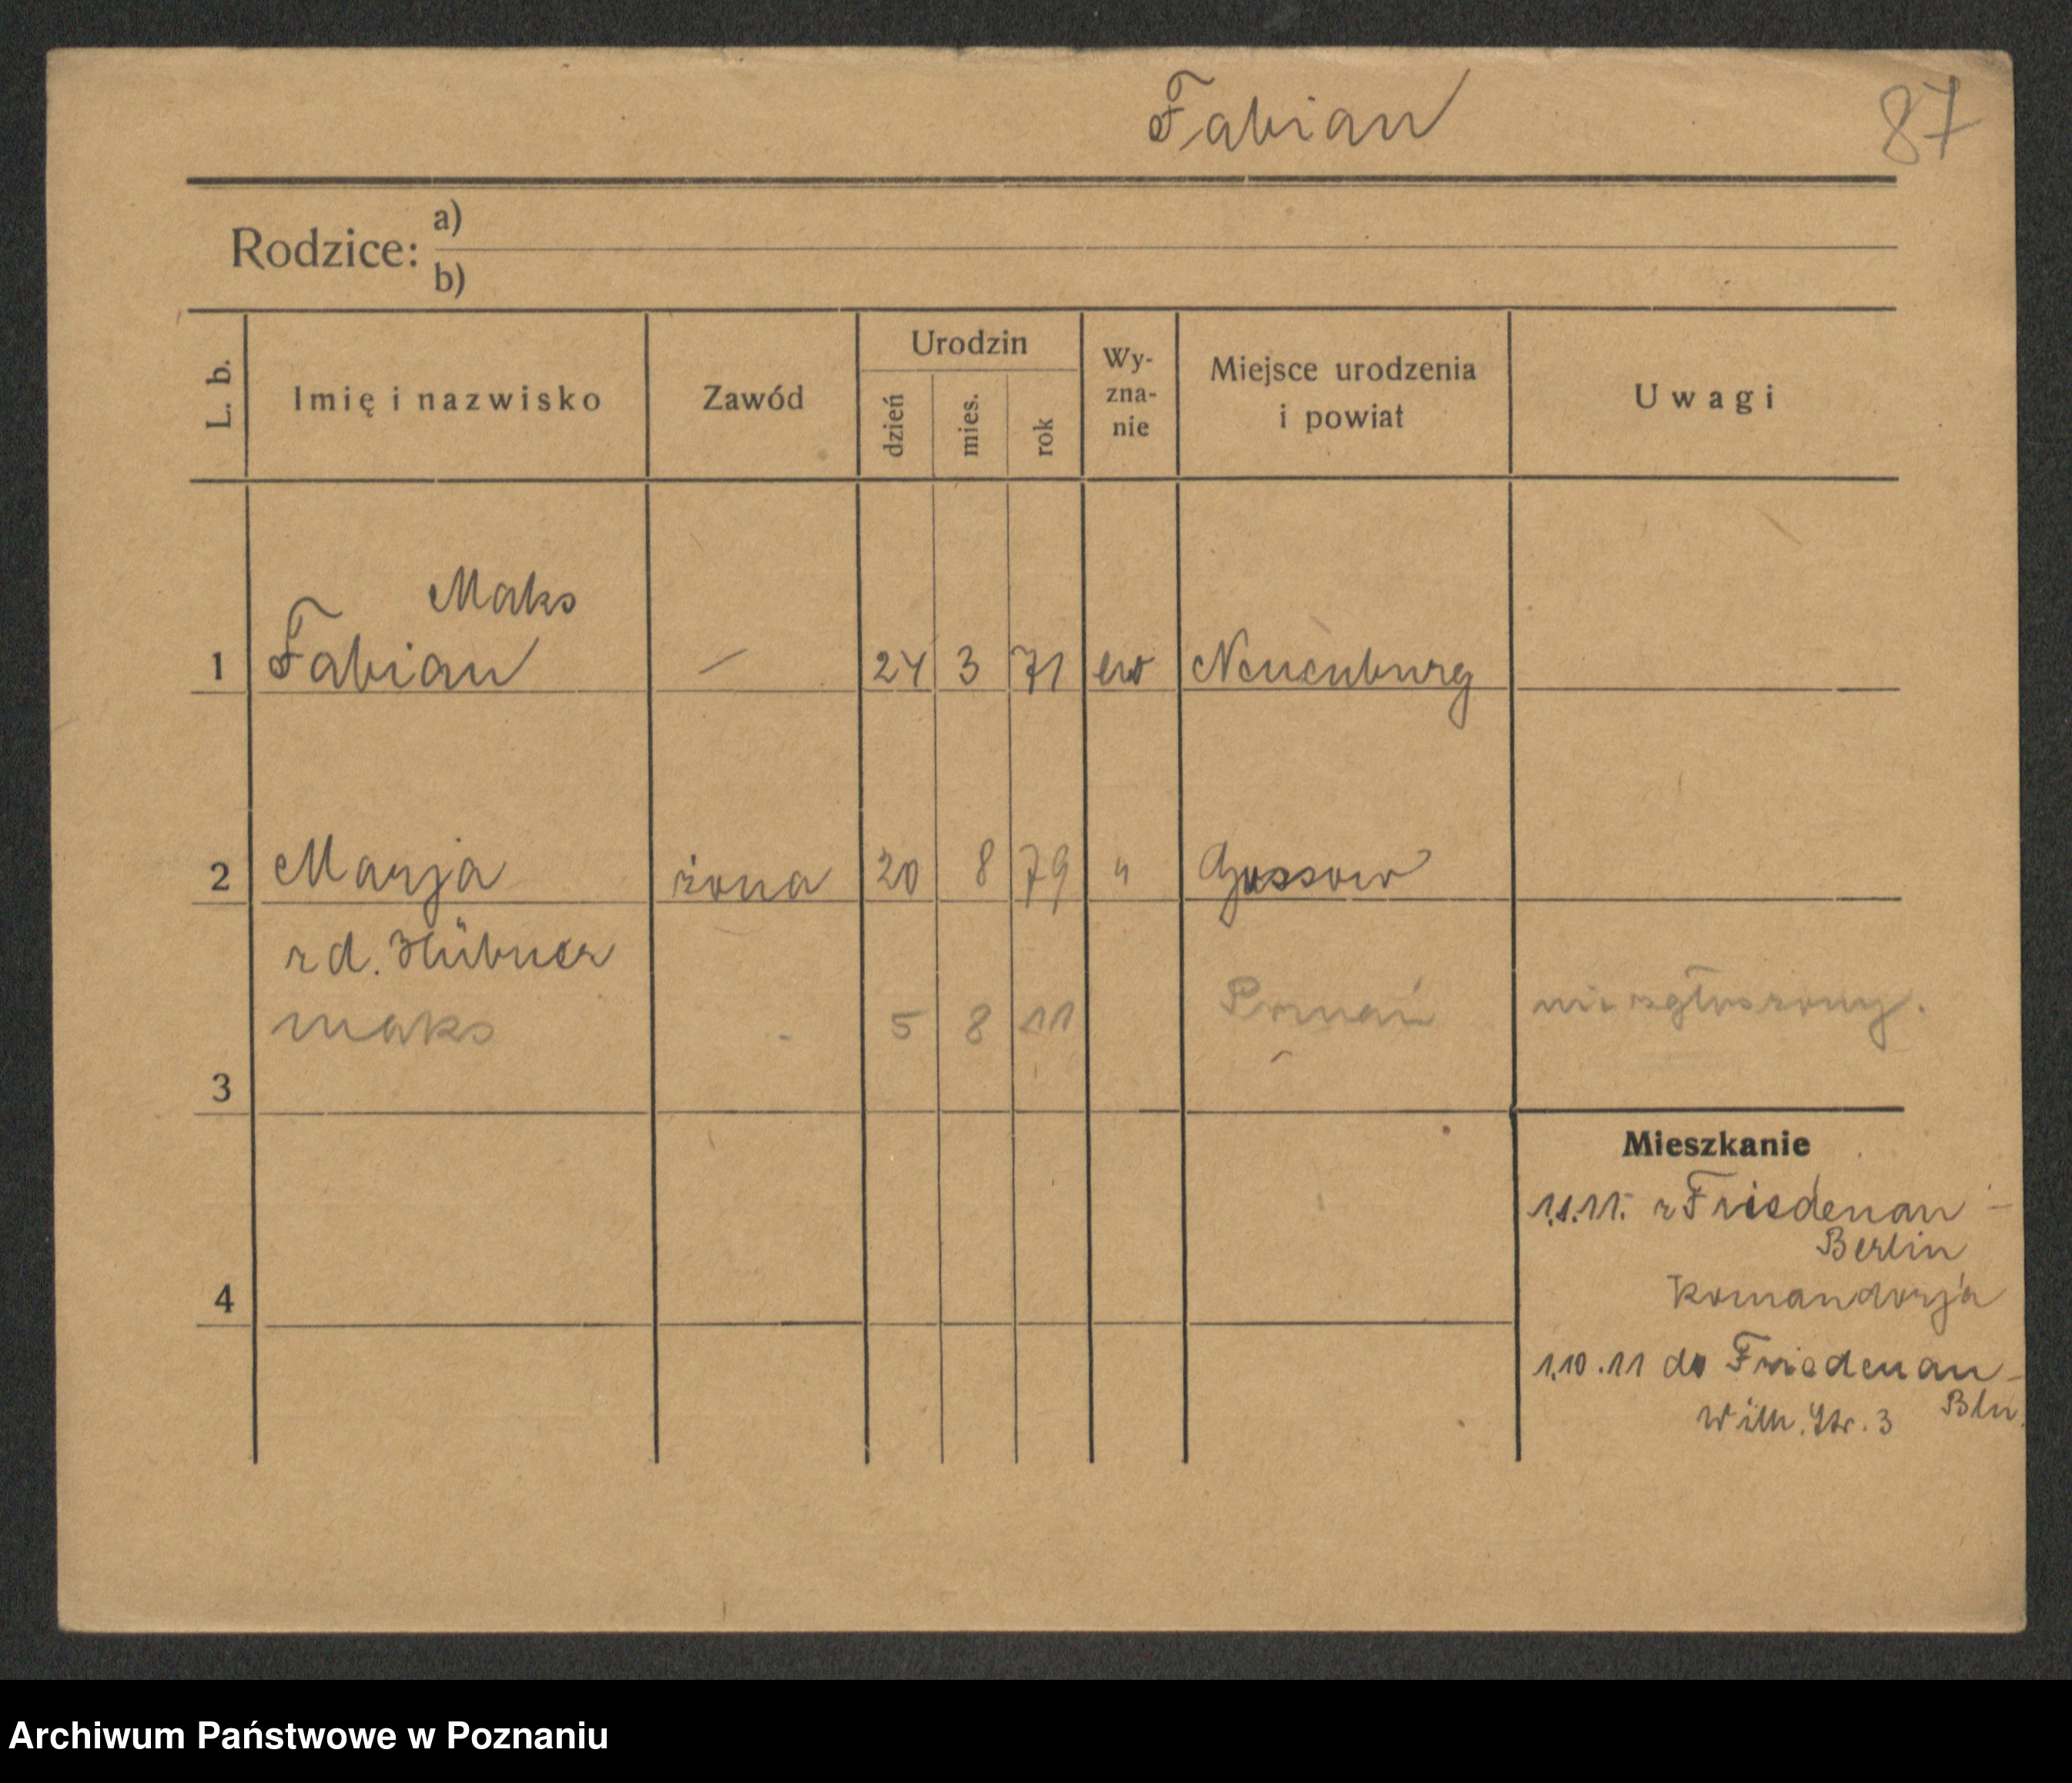 Fabian 87
Rodzice: a)
b)
L. b. Imię i nazwisko Zawód Urodzin dzień mies. rok Wy-zna-nie Miejsce urodzenia i powiat Uwagi
Maks
1 Fabian — 24 3 71 ew Neuenburg
2 Marja żona 20 8 79 " Gossow
rd. Hübner
maks - 5 8 11 Poznań nie zgłoszony.
3
Mieszkanie
1.1.11. z Friedenau -
Berlin
Komandorja
4
1.10.11 do Friedenau -
Bln.
Wilh. Str. 3
Archiwum Państwowe w Poznaniu